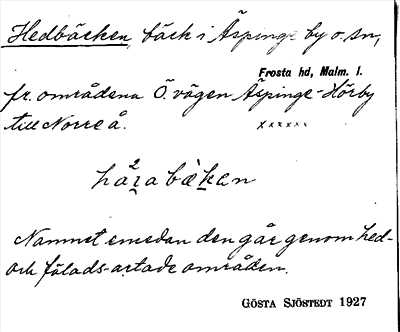 Hedbäcken, bäck i Äspinge by o. sn,
Frosta hd, Malm. l.
fr. områdena Ö. vägen Äspinge-Hörby
till Norreå. xxxxxx
Namnet emedan den går genom hed-
och fälads-artade områden.
GÖSTA SJÖSTEDT 1927